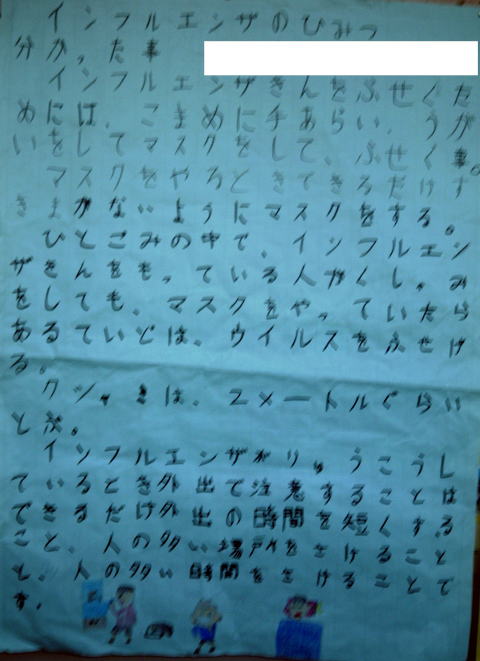 インフルエンザのひみつ
分かった事
インフルエンザきんをふせぐた
めには、こまめに手あらい、うが
いをしてマスクをして、ふせぐ事。
マスクをやるときできるだけす
きまがないようにマスクをする。
ひとごみの中で、インフルエン
ザきんをもっている人がくしゃみ
をしても、マスクをやっていたら
あるていどは、ウイルスをふせげ
る。
クシャきは、2メートルぐらい
とぶ。
インフルエンザがりゅうこうし
ているとき外出で注意することは
できるだけ外出の時間を短くする
こと、人の多い場所をさけること
と、人の多い時間をさけることで
す。